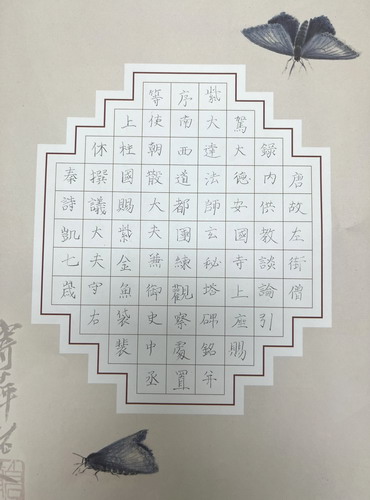 唐故左街僧
錄內供教談論引
駕大德安國寺上座賜
紫大達法師玄秘塔碑銘并
序南西道都團練觀察處置
等使朝散大夫兼御史中丞
上柱國賜紫金魚袋裴
休撰議大夫守右
秦詩凱七歲